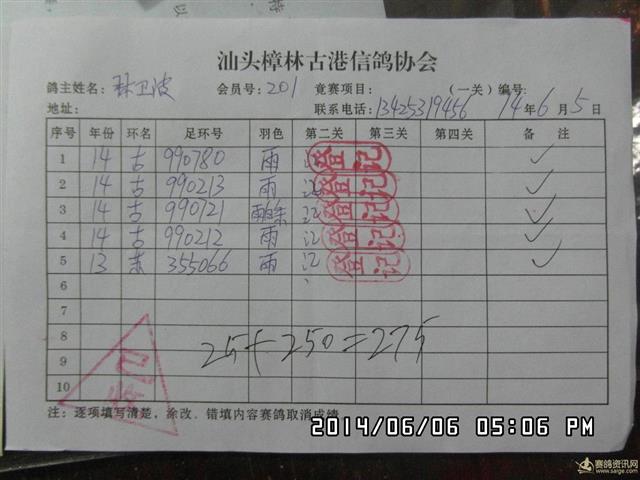 汕头樟林古港信鸽协会
鸽主姓名: 林卫波 会员号: 201 竟赛项目: (一关) 编号:
地址: 联系电话: 13425319456 14年6月5日
序号 年份 环名 足环号 羽色 第二关 第三关 第四关 备 注
1 14 古 990780 雨 登记 ✓
2 14 古 990213 雨 登记 ✓
3 14 古 990721 登记 ✓
4 14 古 990212 雨 登记 ✓
5 13 355066 雨 登记 ✓
6
7
8
25+250=275
9
10
注: 逐项填写清楚, 涂改、错填内容赛鸽取消成绩
2014/06/06 05:06 PM
赛鸽资讯网
www.saige.com